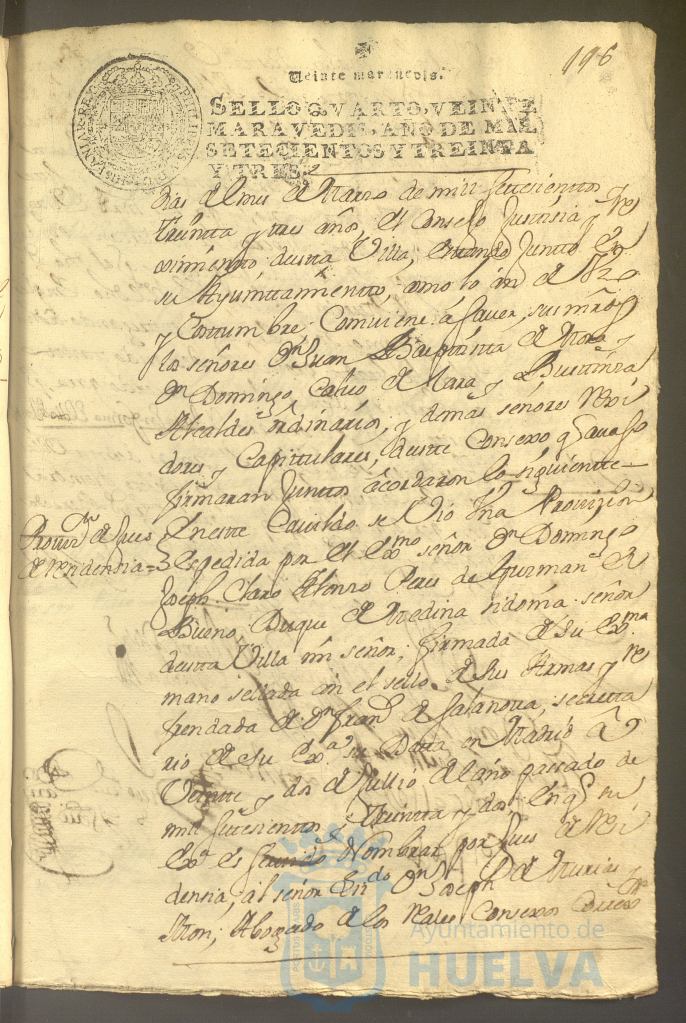 196
Veinte maravedis.
SELLO QVARTO, VEINTE
MARAVEDIS, AÑO DE MIL
SETECIENTOS Y TREINTA
Y TRES.
dias del mes de Marzo de mill setesientos
treintta y tres años, el Consejo Justisia y Re
ximientto desta Villa, estando Juntto en
su Ayunttamientto, como lo an de Uzo
y Costumbre Combiene á saver, sus mrds
los señores Dn Juan Baptista de Mora y
Dn Domingo Calvo de Lara y Bustinza
Alcaldes ordinarios, y demas señores Rexi
dores y Capittulares, deste Consexo q avajo
firmaran Junttos acordaron lo siguientte
Provin de Jues
de residensia =
En este Cavildo se vio Una Provizion
Espedida por el Exmo señor Dn Domingo
Joseph Claro Alonso Peres de Guzman el
Bueno, Duque de Medina sidonia señor
desta Villa mi señor, firmada de su Exma
mano sellada con el sello de sus Armas y re
frendada de Dn Franco de Salanova, secretta
rio de su Exa su Datta en Madrid a
Veintte y dos de Jullio del año passado de
mil setesientos y treintta y dos En q su
Exa es servido Nombrar por Jues de Resi
densia, al señor Lizdo Dn Joseph de Asturias y
Mon, Abogado de los Reales Consexos
Ayuntamiento de
HUELVA